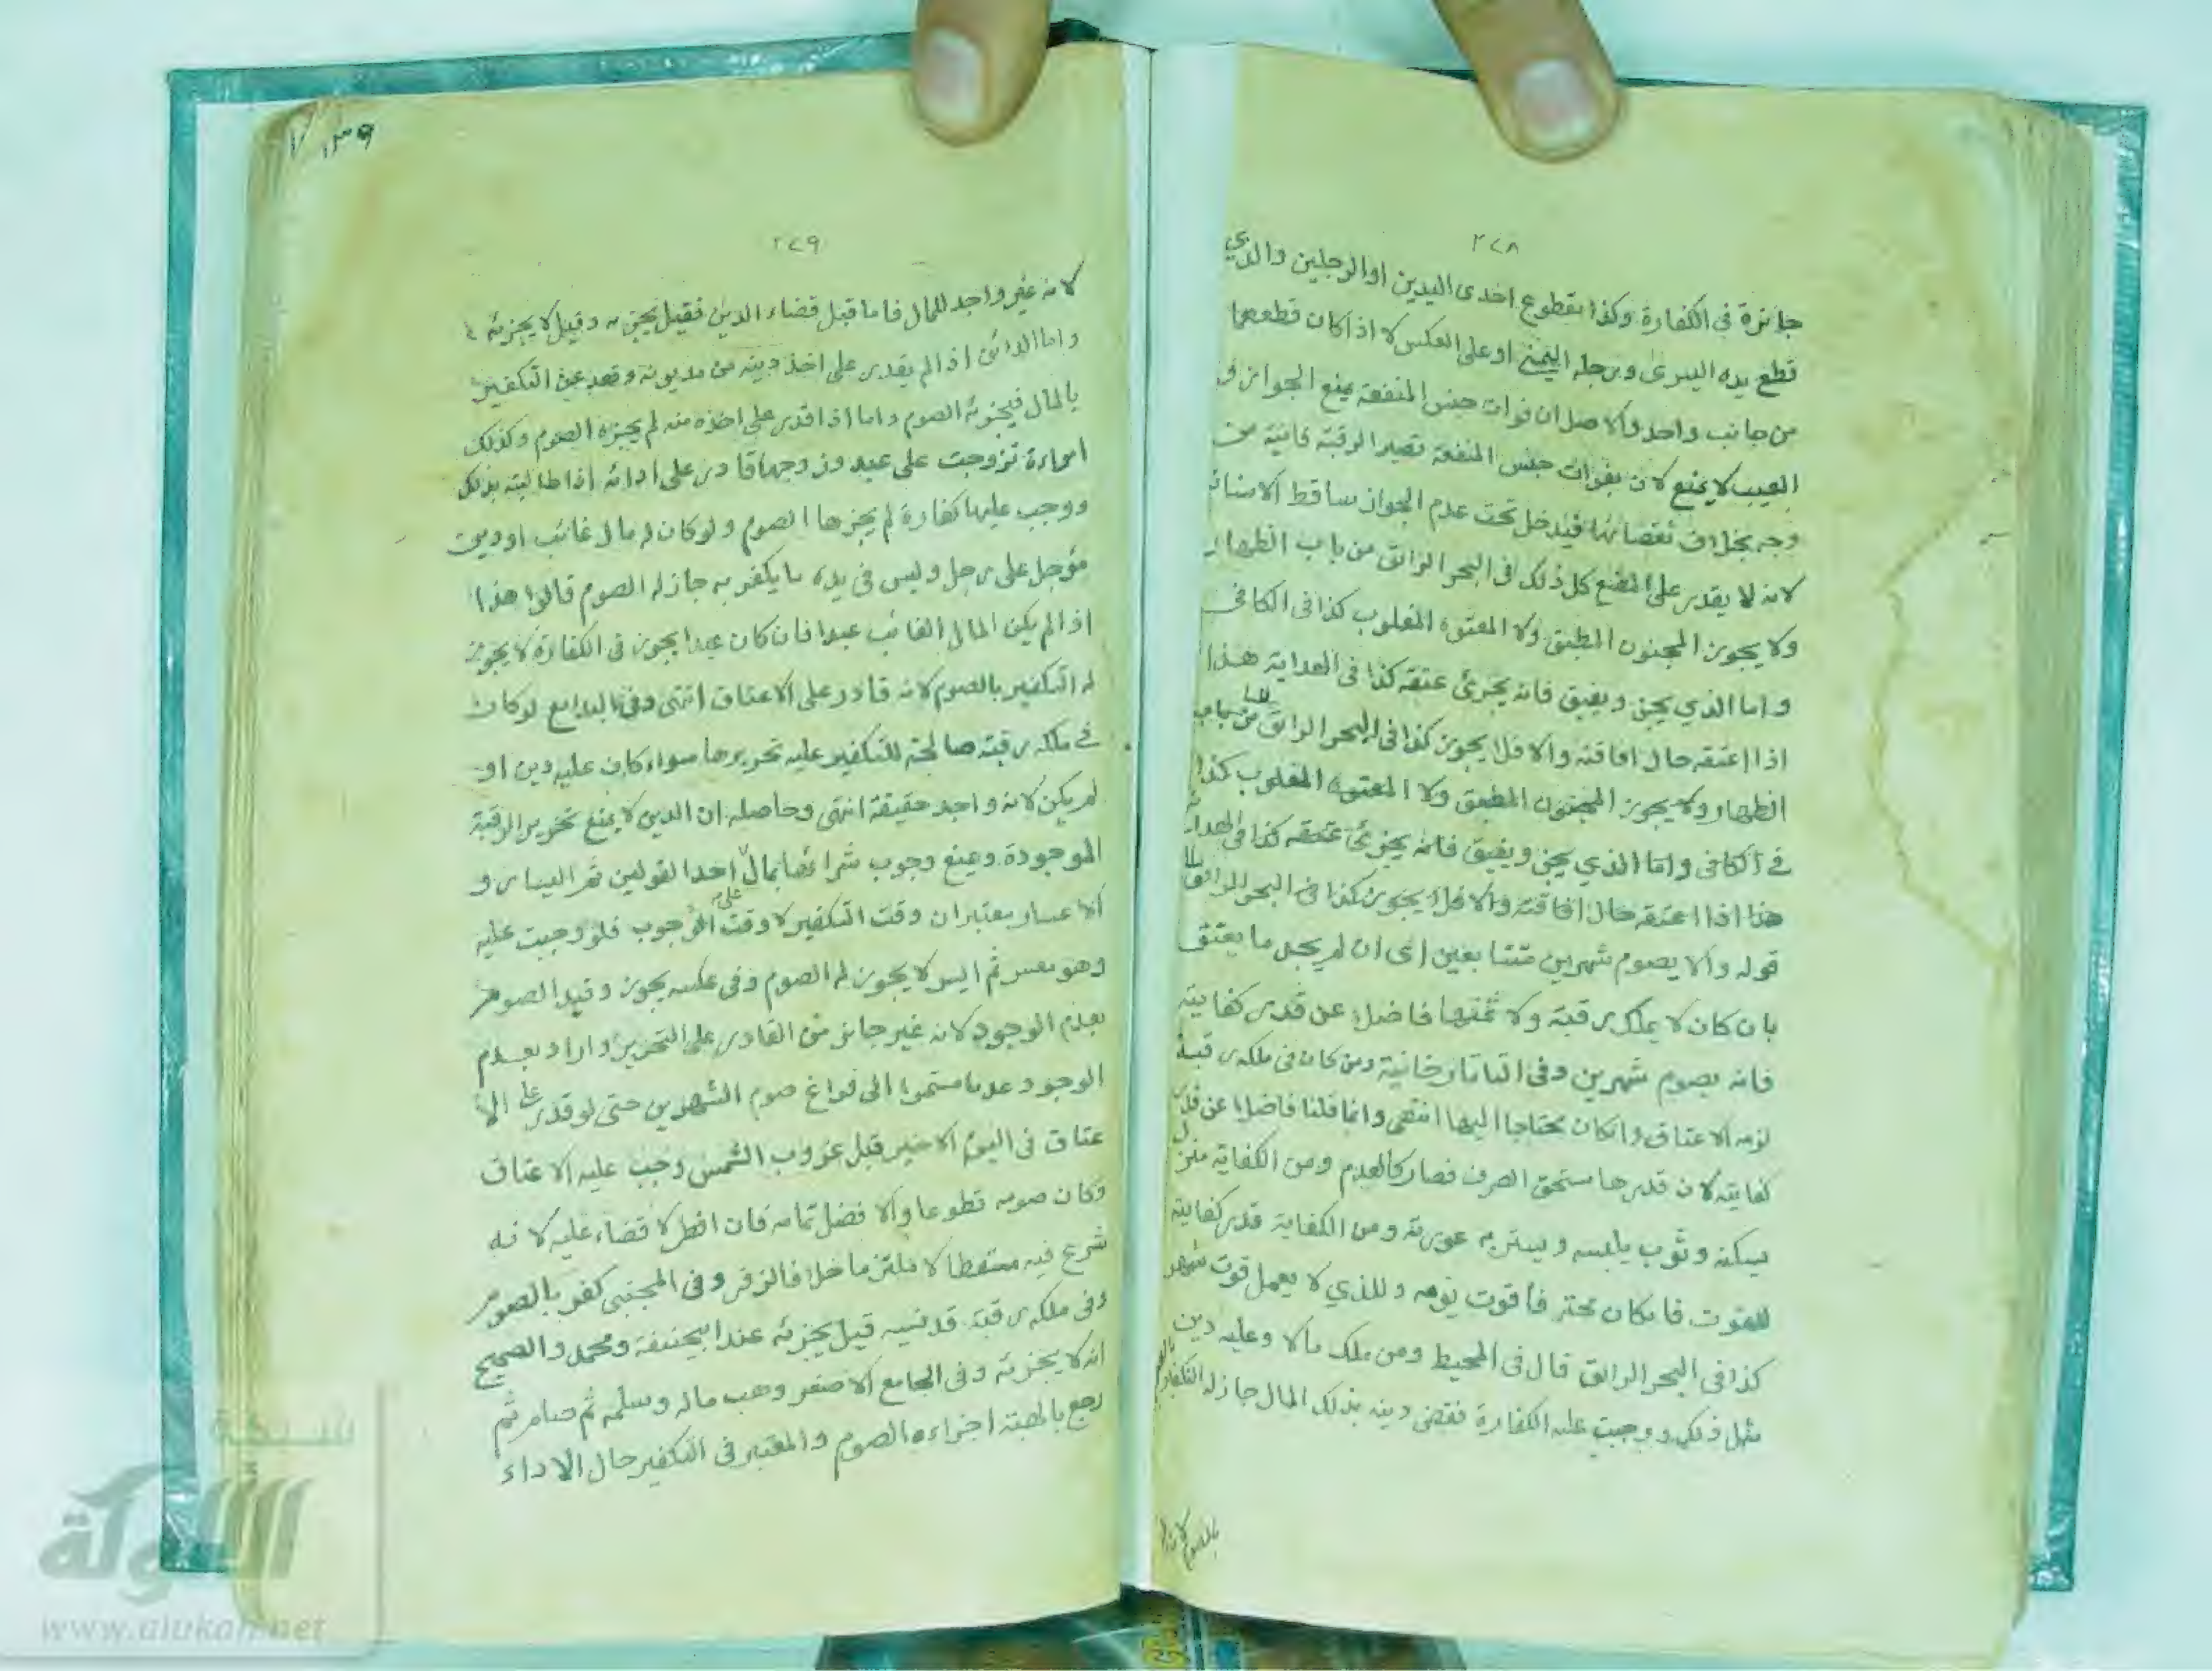 ٢٢٨
جائزة في الكفارة وكذا مقطوع احدى اليدين او الرجلين والذي
قطع يده اليسرى ورجله اليمنى او على العكس لا اذا كان قطعهما
من جانب واحد والاصل ان فوات جنس المنفعة يمنع الجواز و
العيب لا يمنع لان بفوات جنس المنفعة تصير الرقبة فانية من
وجه بخلاف نقصانها فيدخل تحت عدم الجواز ساقط الاسنان
لانه لا يقدر على المضغ كل ذلك في البحر الرائق من باب الظهار
ولا يجوز المجنون المطبق ولا المعتوه المغلوب كذا في الكافي
واما الذي يجن ويفيق فانه يجزئ عتقه كذا في الهداية هذا
اذا اعتقه حال افاقته والا فلا يجوز كذا في البحر الرائق من باب
الظهار ولا يجوز المجنون المطبق ولا المعتوه المغلوب كذا
في الكافي واما الذي يجن ويفيق فانه يجزئ عتقه كذا في الهداية
هذا اذا اعتقه حال افاقته والا فلا يجوز كذا في البحر الرائق
قوله والا يصوم شهرين متتابعين اى ان لم يجد ما يعتق
بان كان لا يملك رقبة ولا ثمنها فاضلا عن قدر كفايته
فانه يصوم شهرين وفى التاتارخانية ومن كان فى ملكه رقبة
لزمه الاعتاق وان كان محتاجا اليها انتهى وانما قلنا فاضلا عن قدر
كفايته لان قدرها مستحق الصرف فصار كالعدم ومن الكفاية منزل
يسكنه وثوب يلبسه ويستر به عورته ومن الكفاية قدر كفايته
للقوت فان كان محترفا قوت يومه وللذي لا يعمل قوت شهر
كذا فى البحر الرائق قال فى المحيط ومن ملك مالا وعليه دين
مثل ذلك ووجبت عليه الكفارة فقضى دينه بذلك المال جاز له التكفير بالصوم
بالصوم لانه
١٣٩
٢٢٩
لانه غير واجد للمال فاما قبل قضاء الدين فقيل يجزيه وقيل لا يجزئه
واما الدائن اذا لم يقدر على اخذ دينه من مديونه وقد عجز عن التكفير
بالمال فيجزئه الصوم واما اذا قدر على اخذه منه لم يجزه الصوم وكذلك
امراءة تزوجت على عبد وزوجها قادر على ادائه اذا طالبته بذلك
ووجب عليها كفارة لم يجزها الصوم ولو كان له مال غائب او دين
مؤجل على رجل وليس في يده ما يكفر به جاز له الصوم قالوا هذا
اذا لم يكن المال الغائب عبدا فان كان عبدا يجوز في الكفارة لا يجوز
له التكفير بالصوم لانه قادر على الاعتاق انتهى وفى البدائع لو كان
في ملكه رقبة صالحة للتكفير عليه تحريرها سواء كان عليه دين او
لم يكن لانه واجد حقيقة انتهى وحاصله ان الدين لا يمنع تحرير الرقبة
الموجودة ويمنع وجوب شرائها بمال على احد القولين ثم اليسار و
الاعسار يعتبران وقت التكفير لا وقت الوجوب فلو وجبت عليه
وهو معسر ثم ايسر لا يجوز له الصوم وفى عكسه يجوز وقيد الصوم
بعدم الوجود لانه غير جائز من القادر على التحرير واراد بعدم
الوجود عدما مستمرا الى فراغ صوم الشهرين حتى لو قدر على الا
عتاق فى اليوم الاخير قبل غروب الشمس وجب عليه الاعتاق
وكان صومه تطوعا والافضل تمامه فان افطر لا قضاء عليه لانه
شرع فيه مسقطا لا ملتزما خلافا لزفر وفى المجتبى كفر بالصوم
وفى ملكه رقبة قد نسيه قيل يجزئه عند ابيحنيفة ومحمد والصحيح
انه لا يجزئه وفى الجامع الاصغر وهب ماله وسلمه ثم صام ثم
رجع بالهبة اجزاءه الصوم والمعتبر فى التكفير حال الاداء
شبكة
الألوكة
www.alukah.net